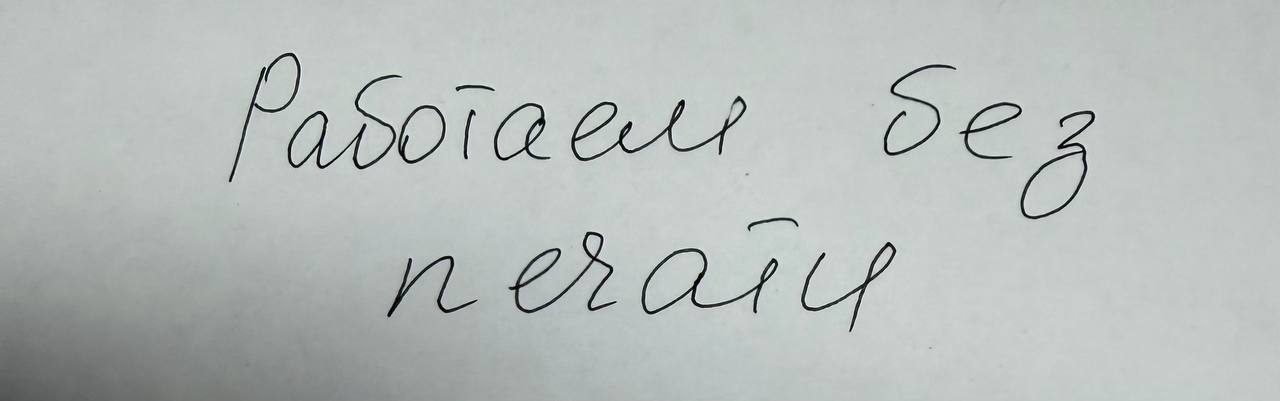 Работаем без
печати